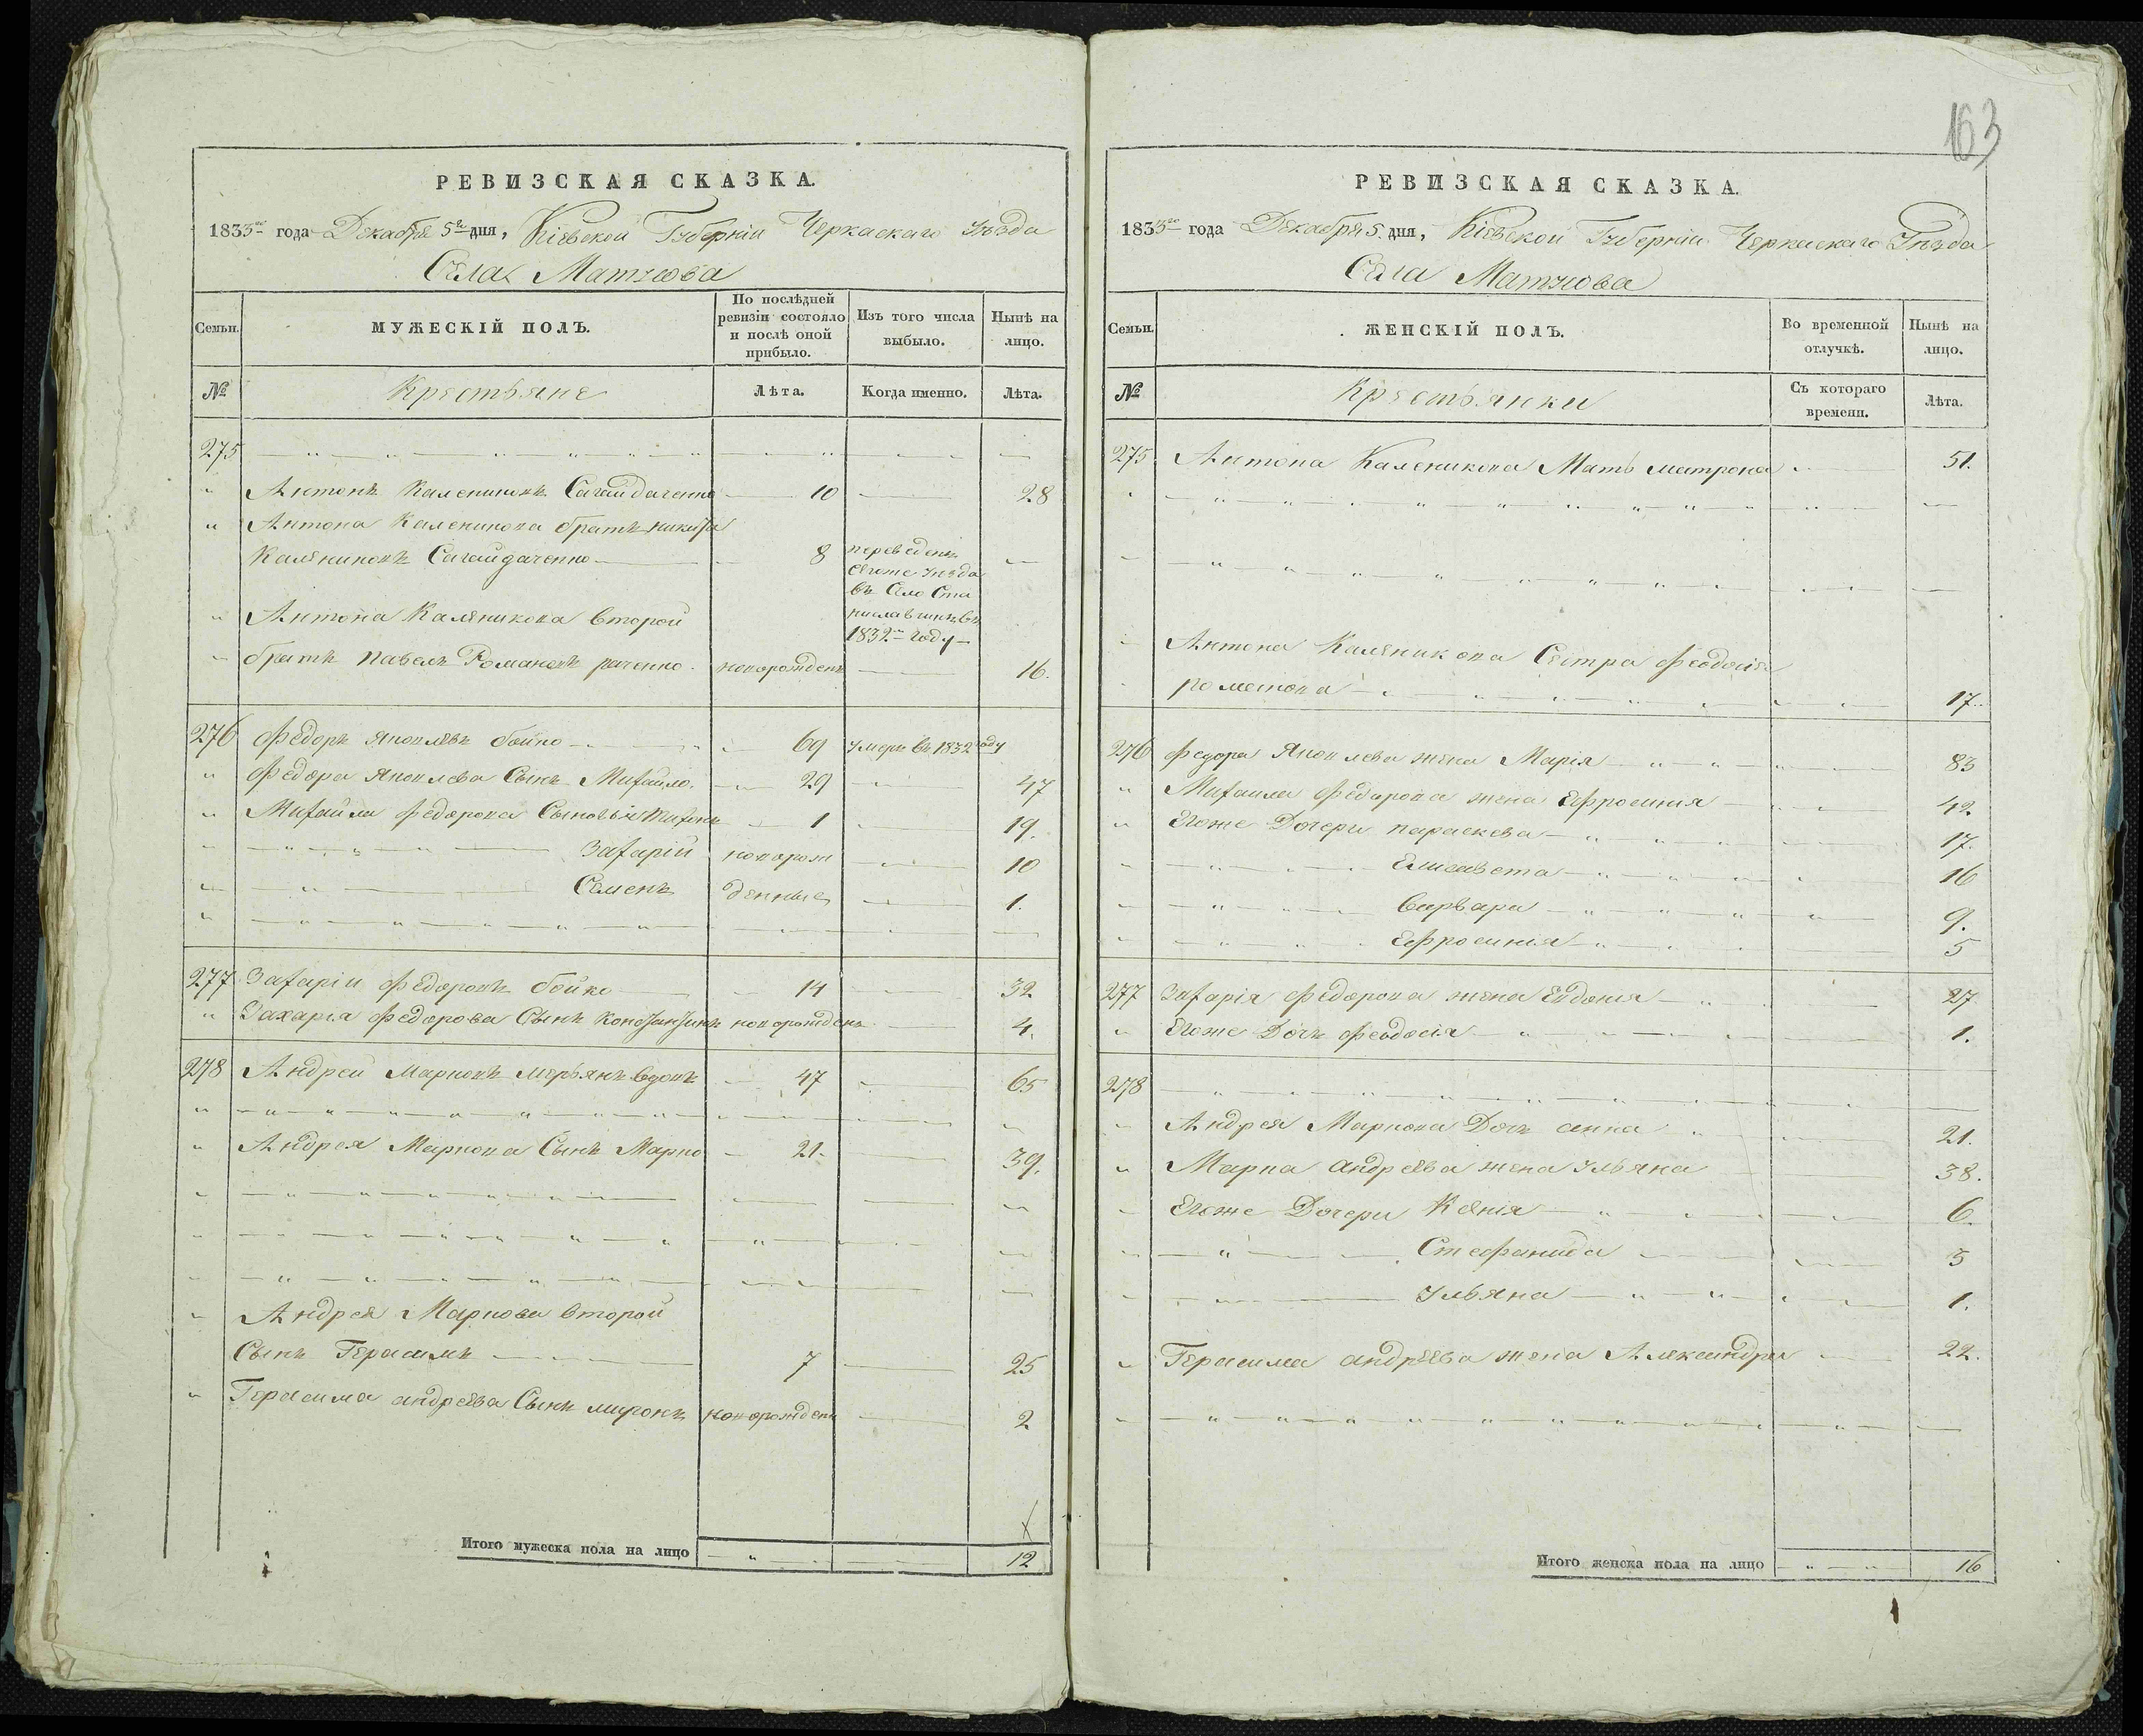 163
РЕВИЗСКАЯ СКАЗКА.
1833го года Декабря 5го дня, Кіевской Губерніи Черкаскаго Уѣзда
Села Матусова
Семьи.
МУЖЕСКІЙ ПОЛЪ.
По послѣдней ревизіи состояло и послѣ оной прибыло.
Изъ того числа выбыло.
Нынѣ на лицо.
№
Крестьяне
Лѣта.
Когда именно.
Лѣта.
275
Антонъ Калениковъ Сагайдаченко 10 28
Антона Каленикова братъ никита
Калениковъ Сагайдаченко 8 переведенъ
тогоже Уѣзда
въ Село Ста
ниславчикъ въ
1832м году
Антона Каленикова второй
братъ павелъ Романовъ новорожденъ 16.
276 Федоръ Яковлевъ бойко 69 умеръ въ 1832 году
Федора Яковлева Сынъ Михайло. 29 47
Михайла Федорова Сыновья 1 19.
Захарій новорож 10
Семенъ денные 1.
277 Захарій Федоровъ бойко 14 32
Захарія Федорова Сынъ Константинъ новорожденъ 4.
278 Андрей Марковъ вдовъ 47 65
Андрея Маркова Сынъ Марко 21. 39.
Андрея Маркова второй
Сынъ Герасимъ 7 25
Герасима андреева Сынъ миронъ новорожденъ 2
Итого мужеска пола на лицо 12
РЕВИЗСКАЯ СКАЗКА.
1833го года Декабря 5. дня, Кіевской Губерніи Черкаскаго Уѣзда
Села Матусова
Семьи.
ЖЕНСКІЙ ПОЛЪ.
Во временной отлучкѣ.
Нынѣ на лицо.
№
Крестьянки
Съ котораго времени.
Лѣта.
275. Антона Каленикова Мать матрона 51.
Антона Каленикова Сестра Феодосія
романова 17.
276 Федора Яковлева жена Марія 83
Михаила Федорова жена Ефросинія 42
Егоже Дочери параскева 17.
Елисавета 16
Варвара 9.
Ефросинія 5
277 Захарія Федорова жена Евдокія 27.
Егоже Дочь Феодосія 1.
278
Андрея Маркова Дочь анна 21.
Марка андреева жена Ульяна 38.
Егоже Дочери Ксенія 6.
Стефанида 3
Ульяна 1.
Герасима андреева жена Александра 22.
Итого женска пола на лицо 16